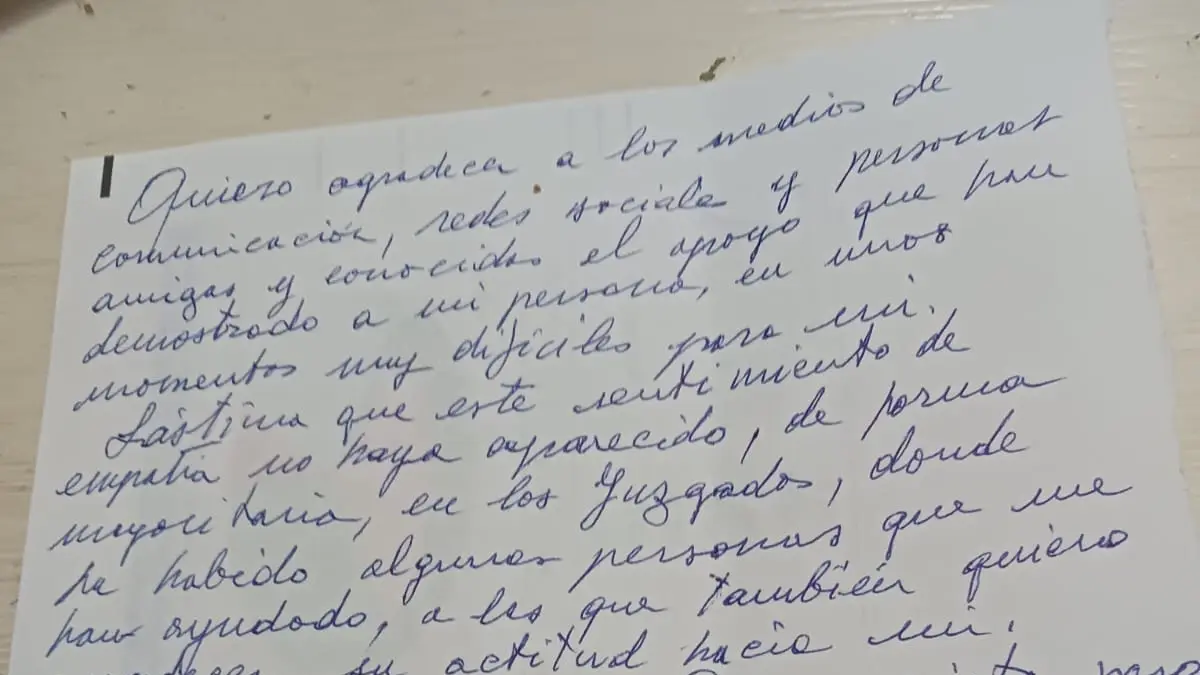 Quiero agradecer a los medios de
comunicación, redes sociales y personas
amigas y conocidas el apoyo que han
demostrado a mi persona, en unos
momentos muy difíciles para mi.
Lástima que este sentimiento de
empatia no haya aparecido, de forma
mayoritaria, en los Juzgados, donde
ha habido algunas personas que me
han ayudado, a las que también quiero
su actitud hacia mi.
para